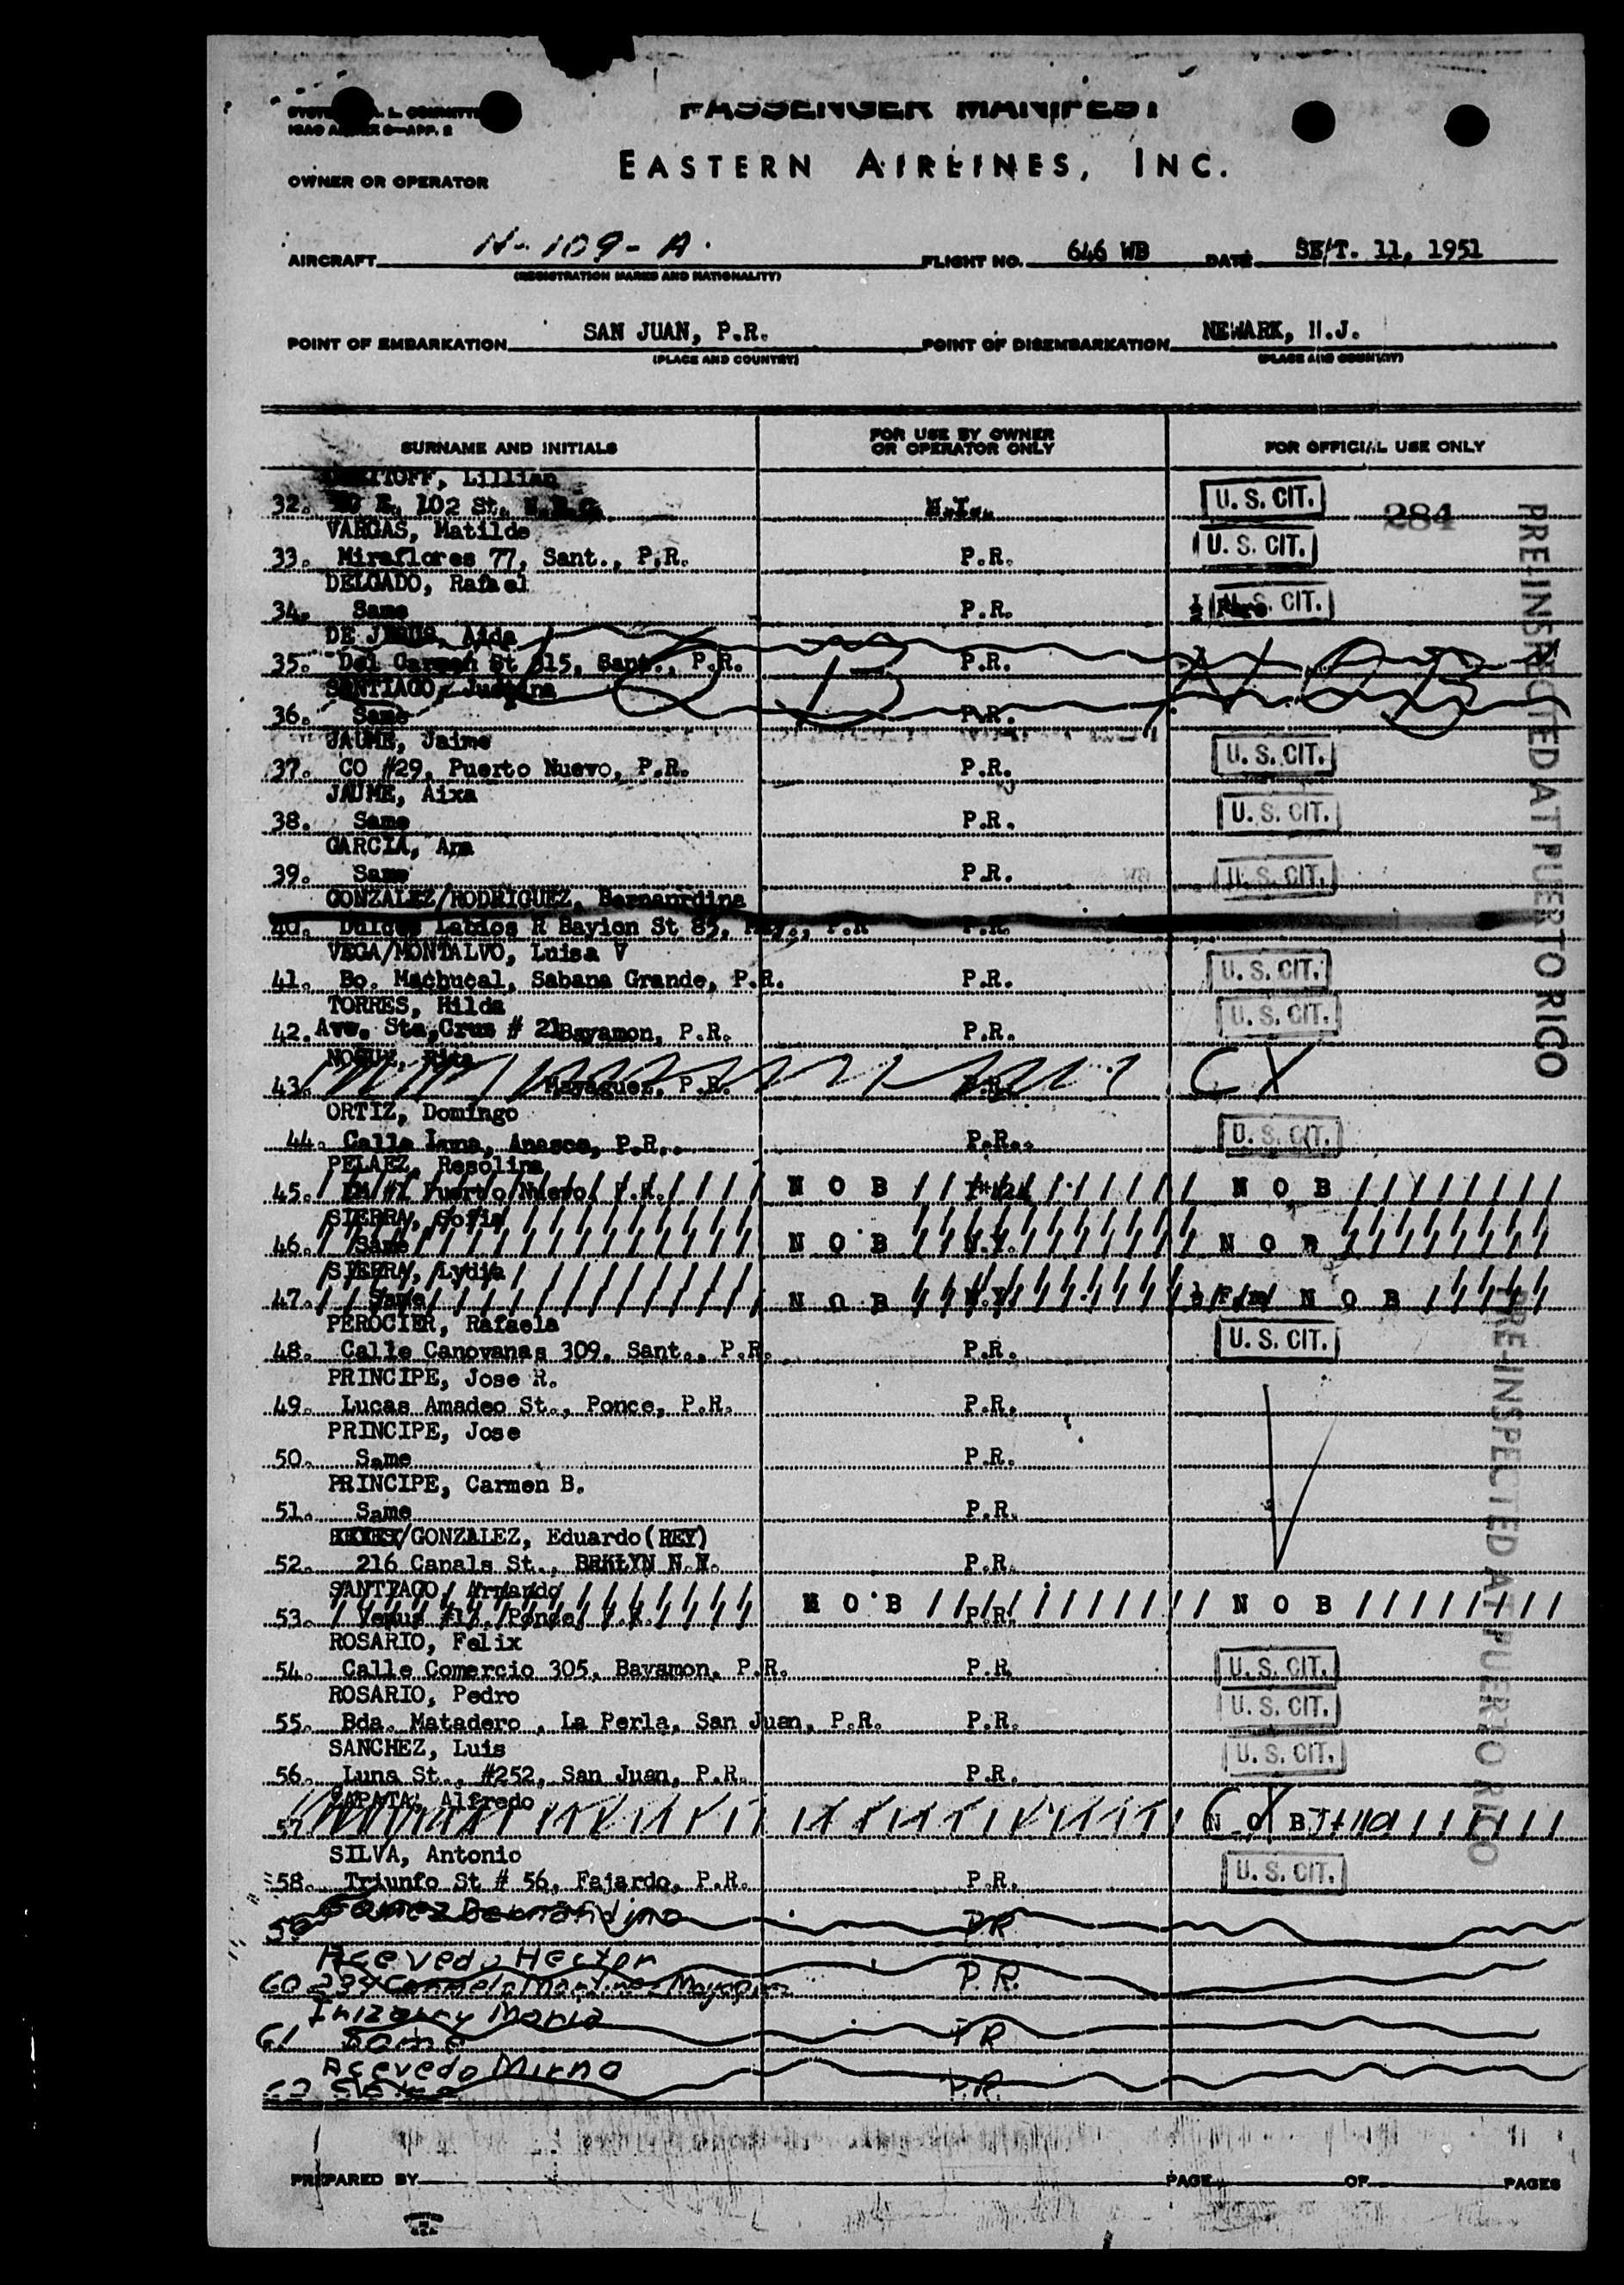 PASSENGER MANIFEST
EASTERN AIRLINES, INC.
OWNER OR OPERATOR
AIRCRAFT N-109-A. FLIGHT NO. 646 WB DATE SEPT. 11, 1951
(REGISTRATION MARKS AND NATIONALITY)
POINT OF EMBARKATION SAN JUAN, P.R. POINT OF DISEMBARKATION NEWARK, N.J.
(PLACE AND COUNTRY) (PLACE AND COUNTRY)
SURNAME AND INITIALS FOR USE BY OWNER OR OPERATOR ONLY FOR OFFICIAL USE ONLY
Lillian
32. 102 St. U. S. CIT. 284
VARGAS, Matilde
33. Miraflores 77, Sant., P.R. P.R. U. S. CIT.
DELGADO, Rafael
34. Same P.R. ½ Fare U. S. CIT.
DE JESUS, Aida
35. Del Carmen St 515, Sant., P.R. P.R.
SANTIAGO, Justina
36. Same P.R.
NOB
JAUME, Jaime
37. CO #29, Puerto Nuevo, P.R. P.R. U. S. CIT.
JAUME, Aixa
38. Same P.R. U. S. CIT.
GARCIA, Ana
39. Same P.R. U. S. CIT.
GONZALEZ/RODRIGUEZ, Bernanrdina
40. Bayion St 85, P.R P.R.
VEGA/MONTALVO, Luisa V
41. Bo. Machucal, Sabana Grande, P.R. P.R. U. S. CIT.
TORRES, Hilda
42. Ave. Sta,Crus # 21 Bayamon, P.R. P.R. U. S. CIT.
Rita
43. Mayaguez, P.R. P.R. CX
ORTIZ, Domingo
44. Calle Luna, Anasco, P.R. P.R. U. S. CIT.
PELAEZ, Resolina
45. Puerto Nuevo, P.R. N O B N O B
SIERRA, Sofia
46. Same N O B N.Y. N O B
SIERRA, Lydia
47. Same N O B N.Y. ½ Fare N O B
PEROCIER, Rafaela
48. Calle Canovanas 309, Sant., P.R. P.R. U. S. CIT.
PRINCIPE, Jose R.
49. Lucas Amadeo St., Ponce, P.R. P.R.
PRINCIPE, Jose
50. Same P.R.
PRINCIPE, Carmen B.
51. Same P.R.
/GONZALEZ, Eduardo (REY)
52. 216 Canals St., BRKLYN N.Y. P.R.
SANTIAGO, Armando
53. Venus #17, Ponce, P.R. N O B P.R. N O B
ROSARIO, Felix
54. Calle Comercio 305, Bayamon, P.R. P.R. U. S. CIT.
ROSARIO, Pedro
55. Bda. Matadero , La Perla, San Juan, P.R. P.R. U. S. CIT.
SANCHEZ, Luis
56. Luna St., #252, San Juan, P.R. P.R. U. S. CIT.
ZAPATA, Alfredo
57. N O B CX
SILVA, Antonio
58. Triunfo St # 56, Fajardo, P.R. P.R. U. S. CIT.
59 P.R
Acevedo Hector
60 P.R.
Irizarry Maria
61 Same P R
Acevedo Mirna
62 Same P.R.
PREPARED BY PAGE OF PAGES
PRE-INSPECTED AT PUERTO RICO
PRE-INSPECTED AT PUERTO RICO